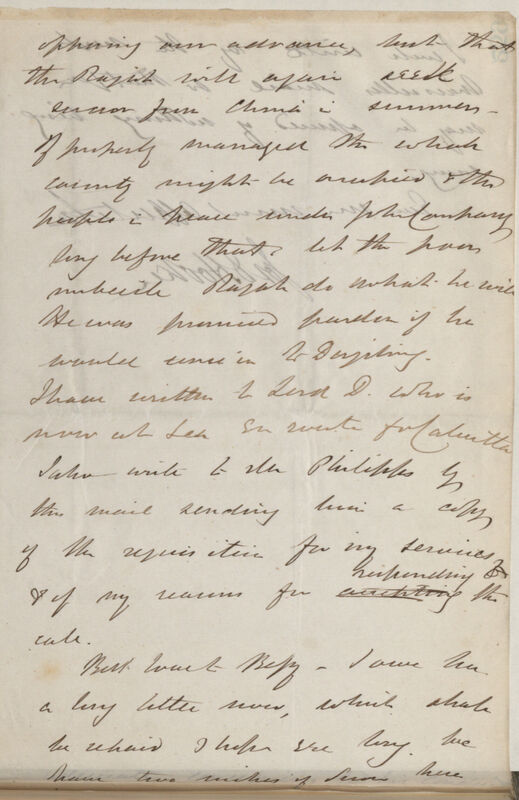 opposing our advance but that
the Rajah will again seek
succor from China in summer –
If properly managed the whole
country might be occupied & the
people in peace under John Company
long before that, let the poor
imbecile Rajah do what he will
He was promised pardon if he
would come in to Dorjiling.
I have written to Lord D. who is
now at Sea en route for Calcutta
I also write to Mr Philipps by
this mail sending him a copy
of the requisition for my services
& of my reasons for accepting responding to the
call.
Best love to Bessy – I owe her
a long letter now, which shall
be repaid I hope ere long. We
have two inches of Snow here